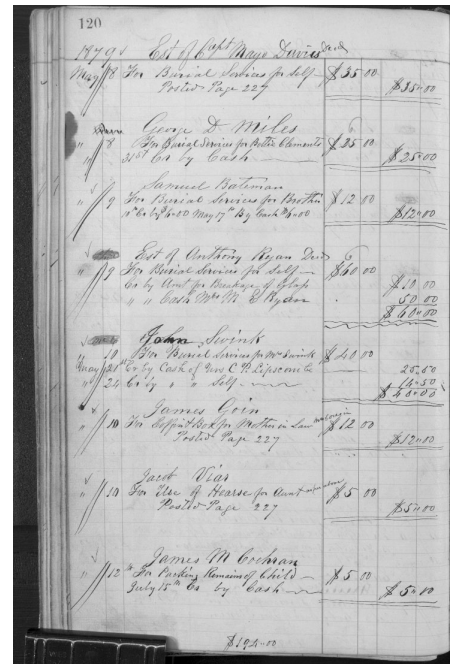 120
1879 Est of Capt Mayo Davies Decd
May 8 For Burial Services for Self $35 00
Posted Page 227 $35 00
George D Miles
" 8 For Burial Services for Bettie Clements $25 00
31st Cr by Cash $25 00
Samuel Bateman
" 9 For Burial Services for Brother $12 00
Cr by $6 00 May 17th By Cash $6 00 $12 00
Est of Anthony Ryan Decd
" 9 For Burial Services for Self $60 00
Cr by Amt for Breakage of Glass $10 00
" " Cash Mrs M E Ryan 50 00
$60 00
John Swink
10 For Burial Services for Mrs Swink $40 00
May 20 Cr by Cash of Geo C P Lipscomb 25.50
" 24 Cr by " " Self 14.50
$40 00
James Goin
" 10 For Coffin & Box for Mother in Law $12 00
Posted Page 227 $12 00
Jacob Vias
" 10 For Use of Hearse for Aunt $5 00
Posted Page 227 $5 00
James M Cochran
" 12th For Packing Remains of Child $5 00
July 15th Cr by Cash $5 00
$194 00